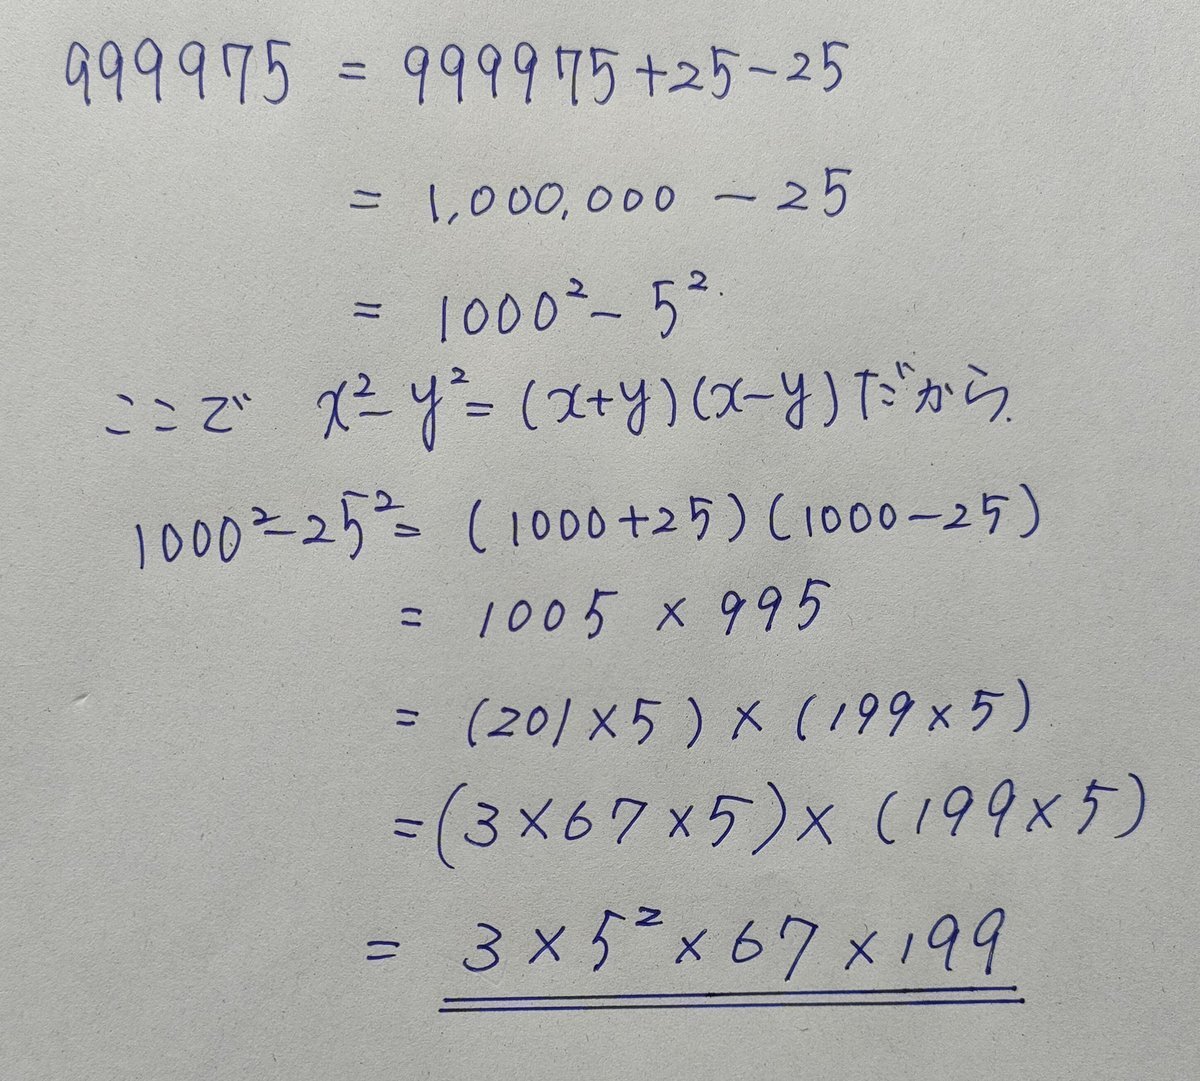 999975 = 999975+25-25
= 1,000,000 - 25
= 1000² - 5²
ここで x² - y² = (x+y)(x-y) だから
1000² - 25² = (1000+25)(1000-25)
= 1005 × 995
= (201×5) × (199×5)
= (3×67×5) × (199×5)
= 3×5²×67×199